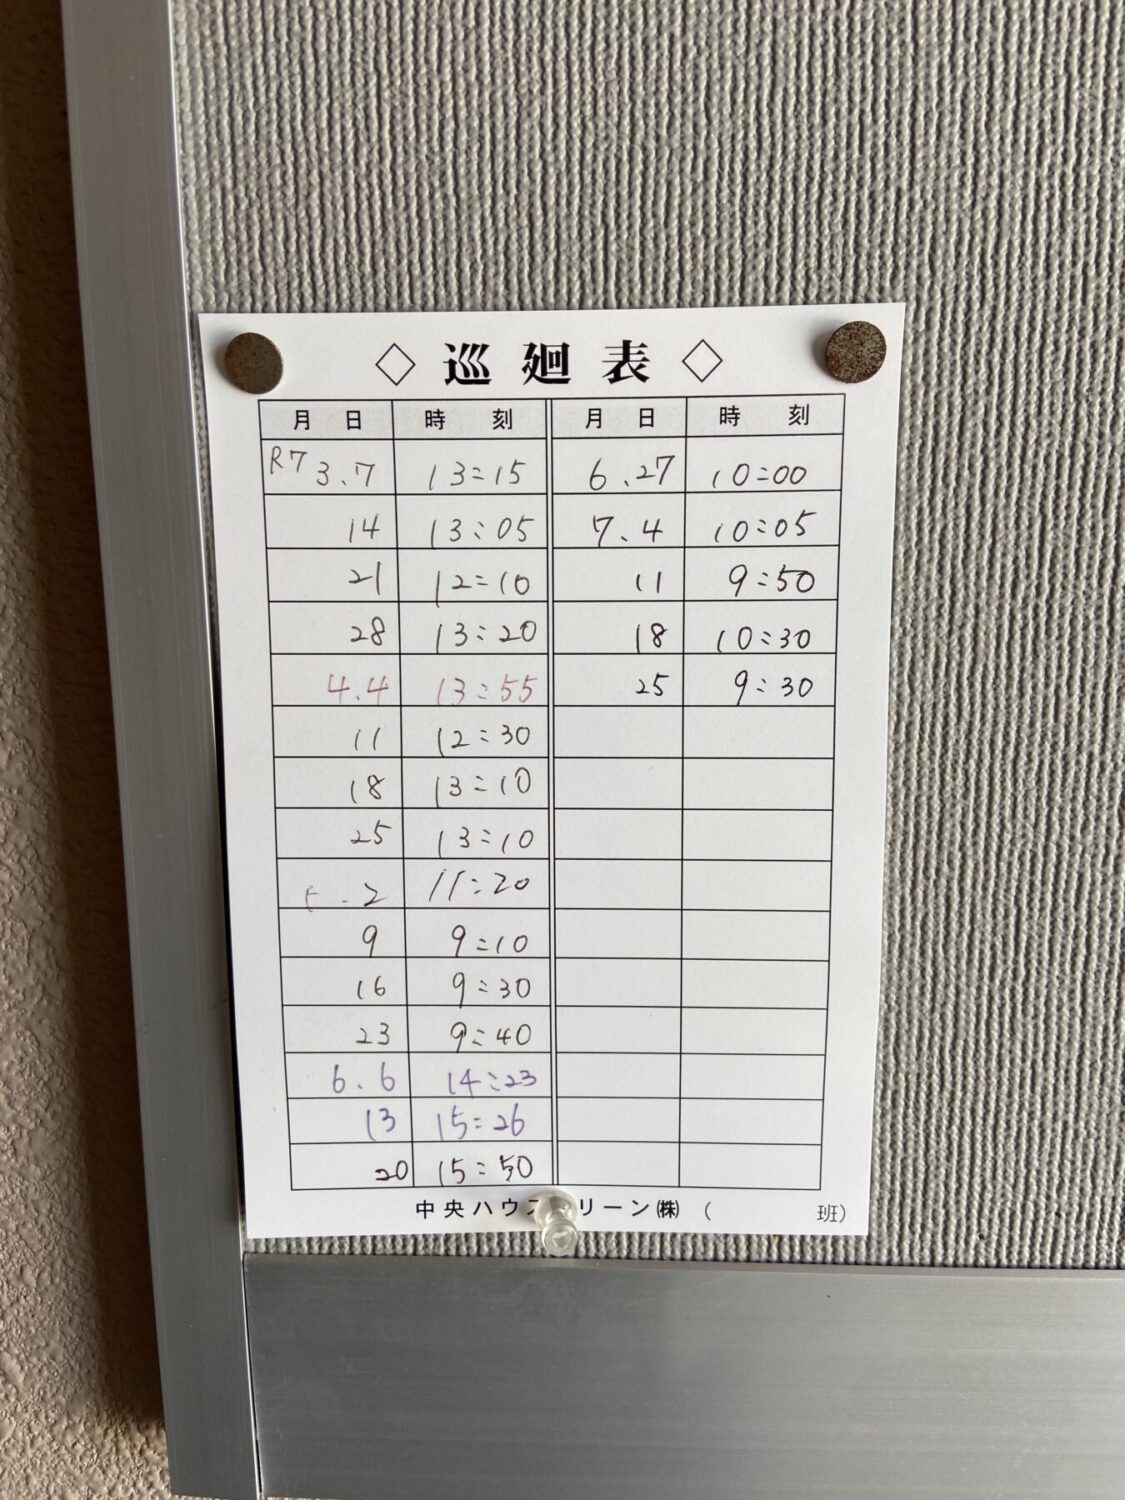 ◇ 巡廻表 ◇
月 日 時 刻 月 日 時 刻
R7 3.7 13:15 6.27 10:00
14 13:05 7.4 10:05
21 12:10 11 9:50
28 13:20 18 10:30
4.4 13:55 25 9:30
11 12:30
18 13:10
25 13:10
.2 11:20
9 9:10
16 9:30
23 9:40
6.6 14:23
13 15:26
20 15:50
中央ハウス リーン㈱ ( 班)